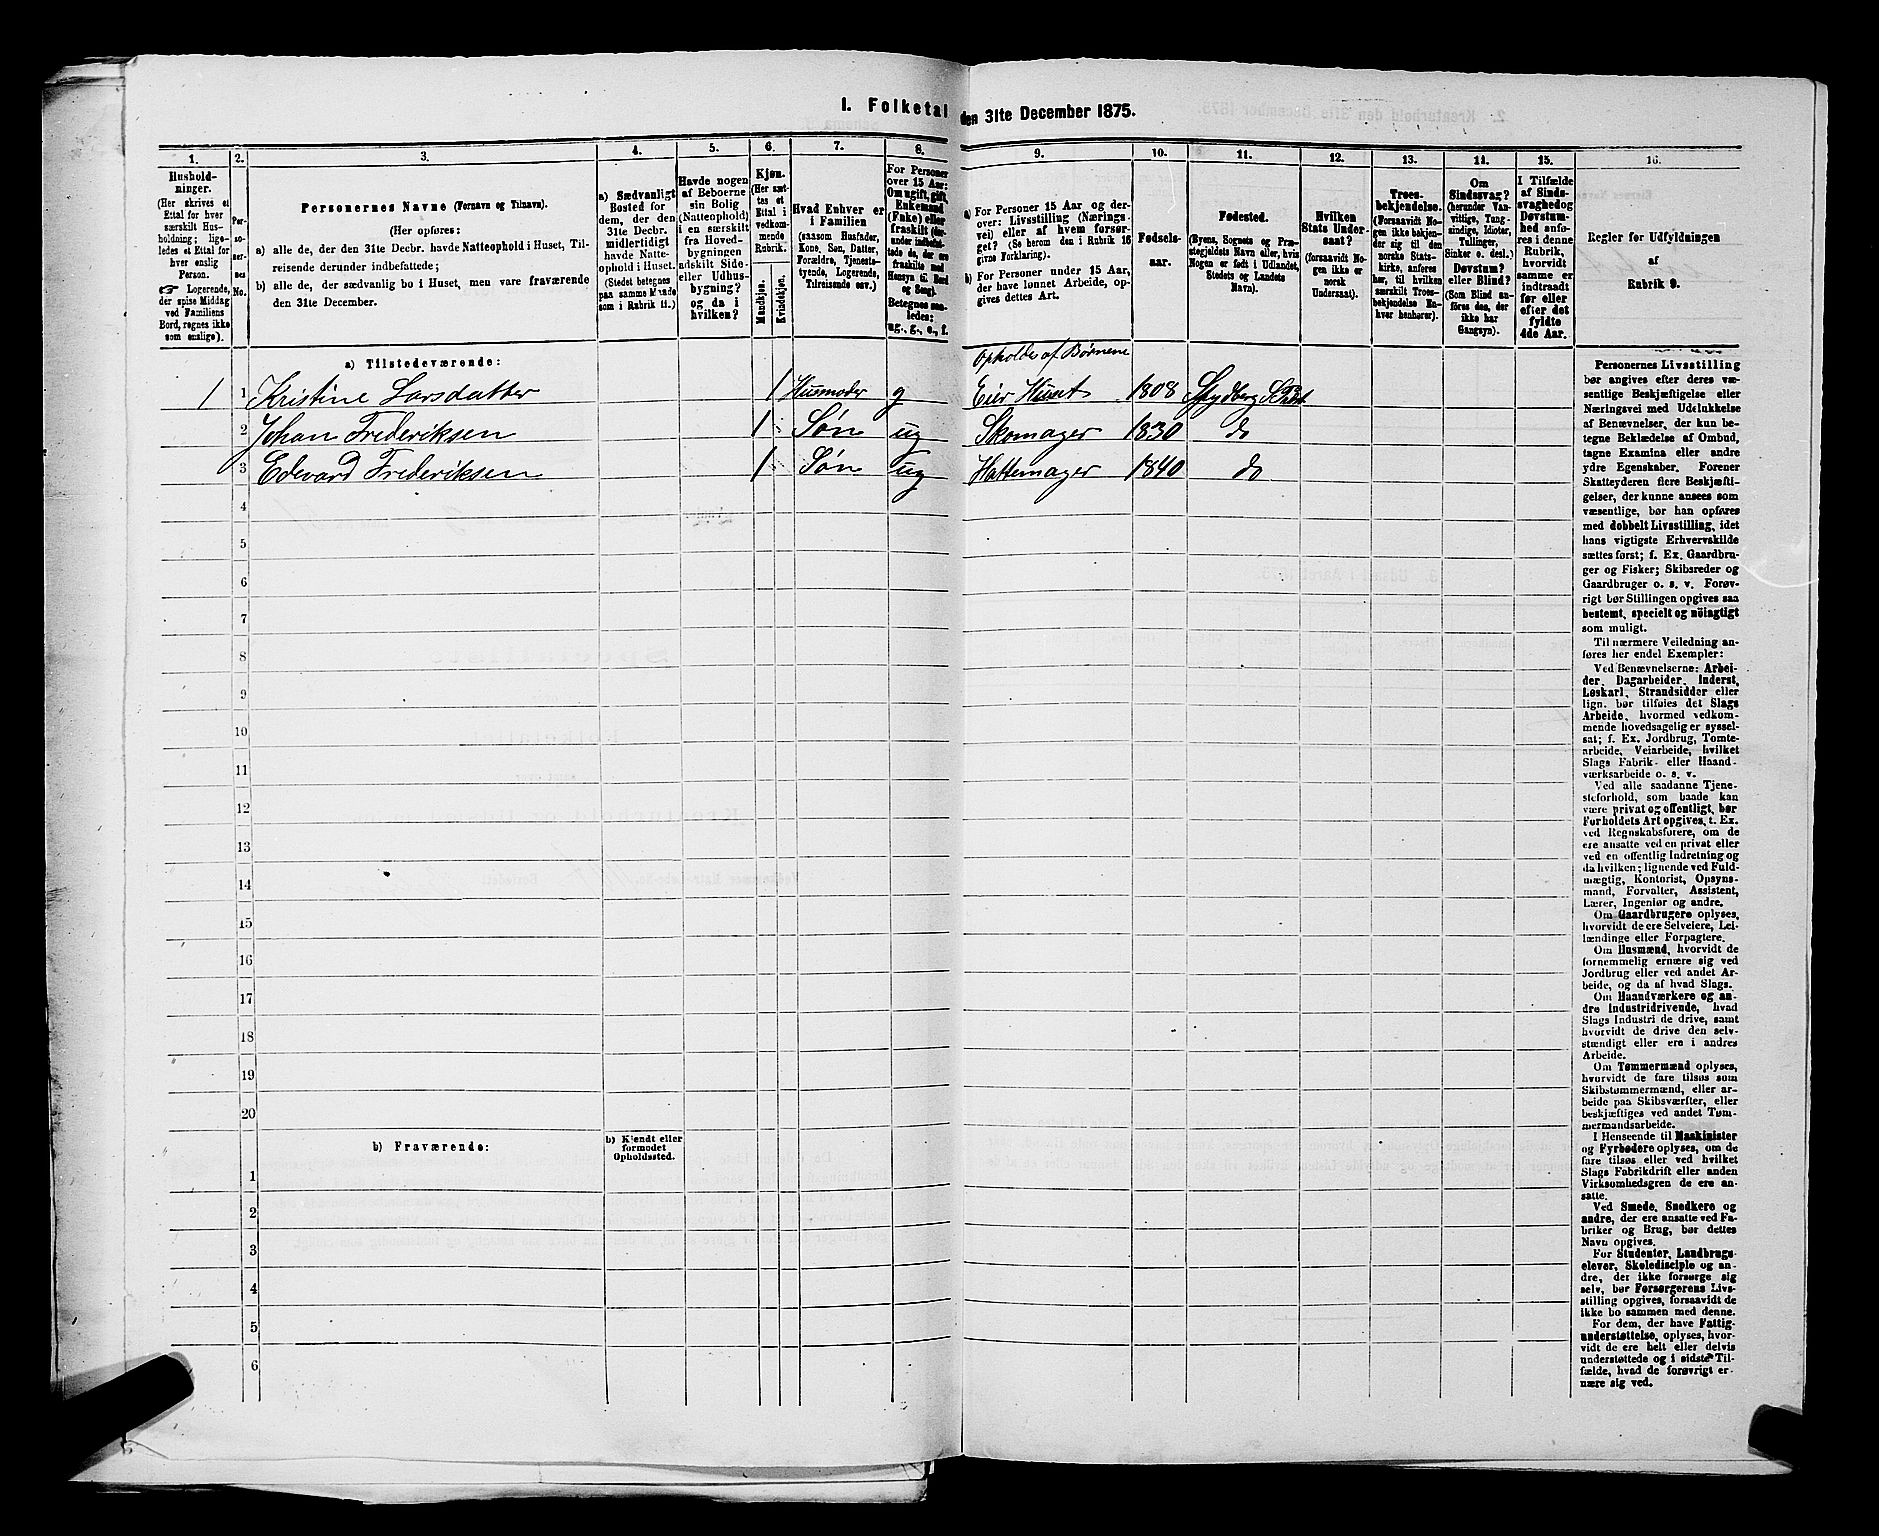 1. Folketal den 31te December 1875.
1. 2. 3. 4. 5. 6. 7. 8. 9. 10. 11. 12. 13. 14. 15. 16.
Hushold-
ninger.
(Her skrives et
Ettal for hver
særskilt Hus-
holdning; lige-
ledes et Ettal for
hver enslig
Person.
☞ Logerende,
der spise Middag
ved Familiens
Bord, regnes ikke
som enslige).
Per-
so-
ner-
nes
No.
Personernes Navne (Fornavn og Tilnavn).
(Her opføres:
a) alle de, der den 31te Decbr. havde Natteophold i Huset, Til-
reisende derunder indbefattede;
b) alle de, der sædvanlig bo i Huset, men vare fraværende
den 31te December.
a) Sædvanligt
Bosted for
dem, der den
31te Decbr.
midlertidigt
havde Natte-
ophold i Huset.
(Stedet betegnes
paa samme Maade
som i Rubrik 11.)
Havde nogen
af Beboerne
sin Bolig
(Natteophold)
i en særskilt
fra Hoved-
bygningen
adskilt Side-
eller Udhus-
bygning?
og da i
hvilken?
Kjøn.
(Her sæt-
tes et
Ettal i
vedkom-
mende
Rubrik.
Mandkjøn.
Kvindekjøn.
Hvad Enhver er
i Familien
(saasom Husfader,
Kone, Søn, Datter,
Forældre, Tjeneste-
tyende, Logerende,
Tilreisende osv.)
For Personer
over 15 Aar:
Om ugift, gift,
Enkemand
(Enke) eller
fraskilt (der-
under indbefat-
tede de, der ere
fraskilte med
Hensyn til Bord
og Seng).
Betegnes saa-
ledes:
ug., g., e., f.
a) For Personer 15 Aar og der-
over: Livsstilling (Nærings-
vei) eller af hvem forsør-
get? (Se herom den i Rubrik 16
givne Forklaring).
b) For Personer under 15 Aar,
der have lønnet Arbeide, op-
gives dettes Art.
Fødsels-
aar.
Fødested.
(Byens, Sognets og Præ-
stegjeldets Navn eller, hvis
Nogen er født i Udlandet,
Stedets og Landets
Navn).
Hvilken
Stats Under-
saat?
(forsaavidt No-
gen ikke er
norsk
Undersaat).
Troes-
bekjendelse.
(Forsaavidt No-
gen ikke bekjen-
der sig til den
norske Stats-
kirke, anføres
her, til hvilken
særskilt Troes-
bekjendelse En-
hver henhører).
Om
Sindssvag?
(herunder Van-
vittige, Tung-
sindige, Idioter,
Tullinger,
Sinker o. desl.)
Døvstum?
eller Blind?
(Som Blind an-
føres den, der
ikke har
Gangsyn).
I Tilfælde
af Sinds-
svaghed og
Døvstum-
hed anfø-
res i denne
Rubrik,
hvorvidt
samme er
indtraadt
før eller
efter det
fyldte
4de Aar.
Regler for Udfyldningen
af
Rubrik 9.
a) Tilstedeværende:
Opholdes af Børnene
1 1 Kristine Larsdatter 1 Husmoder g Eier Huset 1808
2 Johan Frederiksen 1 Søn ug Skomager 1830 do
3 Edevard Frederiksen 1 Søn ug Hattemager 1840 do
4
5
6
7
8
9
10
11
12
13
14
15
16
17
18
19
20
b) Fraværende:
b) Kjendt eller
formodet
Opholdssted.
1
2
3
4
5
6
Personernes Livsstilling
bør angives efter deres væ-
sentlige Beskjæftigelse eller
Næringsvei med Udelukkelse
af Benævnelser, der kun be-
tegne Beklædelse af Ombud,
tagne Examina eller andre
ydre Egenskaber. Forener
Skatteyderen flere Beskjæfti-
gelser, der kunne ansees som
væsentlige, bør han opføres
med dobbelt Livsstilling, idet
hans vigtigste Erhvervskilde
sættes først; f. Ex. Gaardbru-
ger og Fisker; Skibsreder og
Gaardbruger o. s. v. Forøv-
rigt bør Stillingen opgives saa
bestemt, specielt og nöiagtigt
som muligt.
Til nærmere Veiledning an-
føres her endel Exempler:
Ved Benævnelserne: Arbei-
der, Dagarbeider, Inderst,
Løskarl, Strandsidder eller
lign. bør tilføies det Slags
Arbeide, hvormed vedkom-
mende hovedsagelig er syssel-
sat; f. Ex. Jordbrug, Tomte-
arbeide, Veiarbeide, hvilket
Slags Fabrik- eller Haand-
værksarbeide o. s. v.
Ved alle saadanne Tjene-
steforhold, som baade kan
være privat og offentligt, bør
Forholdets Art opgives, t. Ex.
ved Regnskabsførere, om de
ere ansatte ved en privat eller
ved en offentlig Indretning og
da hvilken; lignende ved Fuld-
mægtig, Kontorist, Opsyns-
mand, Forvalter, Assistent,
Lærer, Ingeniør og andre.
Om Gaardbrugere oplyses,
hvorvidt de ere Selveiere, Lei-
lændinge eller Forpagtere.
Om Husmænd, hvorvidt de
fornemmelig ernære sig ved
Jordbrug eller ved andet Ar-
beide, og da af hvad Slags.
Om Haandværkere og an-
dre Industridrivende, hvad
Slags Industri de drive, samt
hvorvidt de drive den selv-
stændigt eller ere i andres
Arbeide.
Om Tømmermænd oplyses,
hvorvidt de fare tilsøs som
Skibstømmermænd, eller ar-
beide paa Skibsværfter, eller
beskjæftiges ved andet Tøm-
mermandsarbeide.
I Henseende til Maskinister
og Fyrbødere oplyses, om de
fare tilsøs eller ved hvilket
Slags Fabrikdrift eller anden
Virksomhedsgren de ere an-
satte.
Ved Smede, Snedkere og
andre, der ere ansatte ved Fa-
briker og Brug, bør dettes
Navn opgives.
For Studenter, Landbrugs-
elever, Skoledisciple og an-
dre, der ikke forsørge sig
selv, bør Forsørgerens Livs-
stilling opgives, forsaavidt de
ikke bo sammen med denne.
For dem, der have Fattig-
understøttelse, oplyses, hvor-
vidt de ere helt eller delvis
understøttede og i sidste Til-
fælde, hvad de forøvrigt er-
nære sig ved.